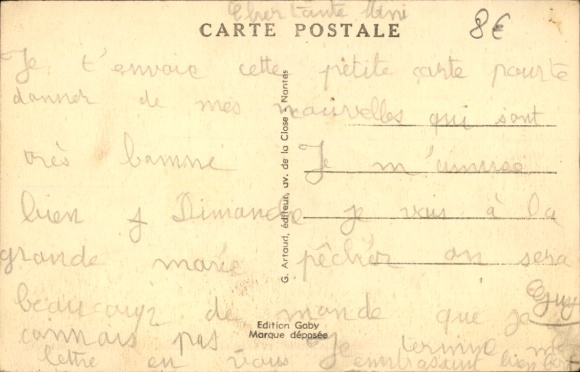 Chertante Mimi
CARTE POSTALE
8€
Je t'envoie cette petite carte pour te
donner de mes nouvelles qui sont
très bonne Je m'amuse
bien Dimanche je vais à la
grande marée pêcher on sera
beaucoup de monde que je
connais pas Je termine ma
lettre en vous embrassant bien fort
Guy
G. Artaud, éditeur, av. de la Close - Nantes
Edition Gaby
Marque déposée